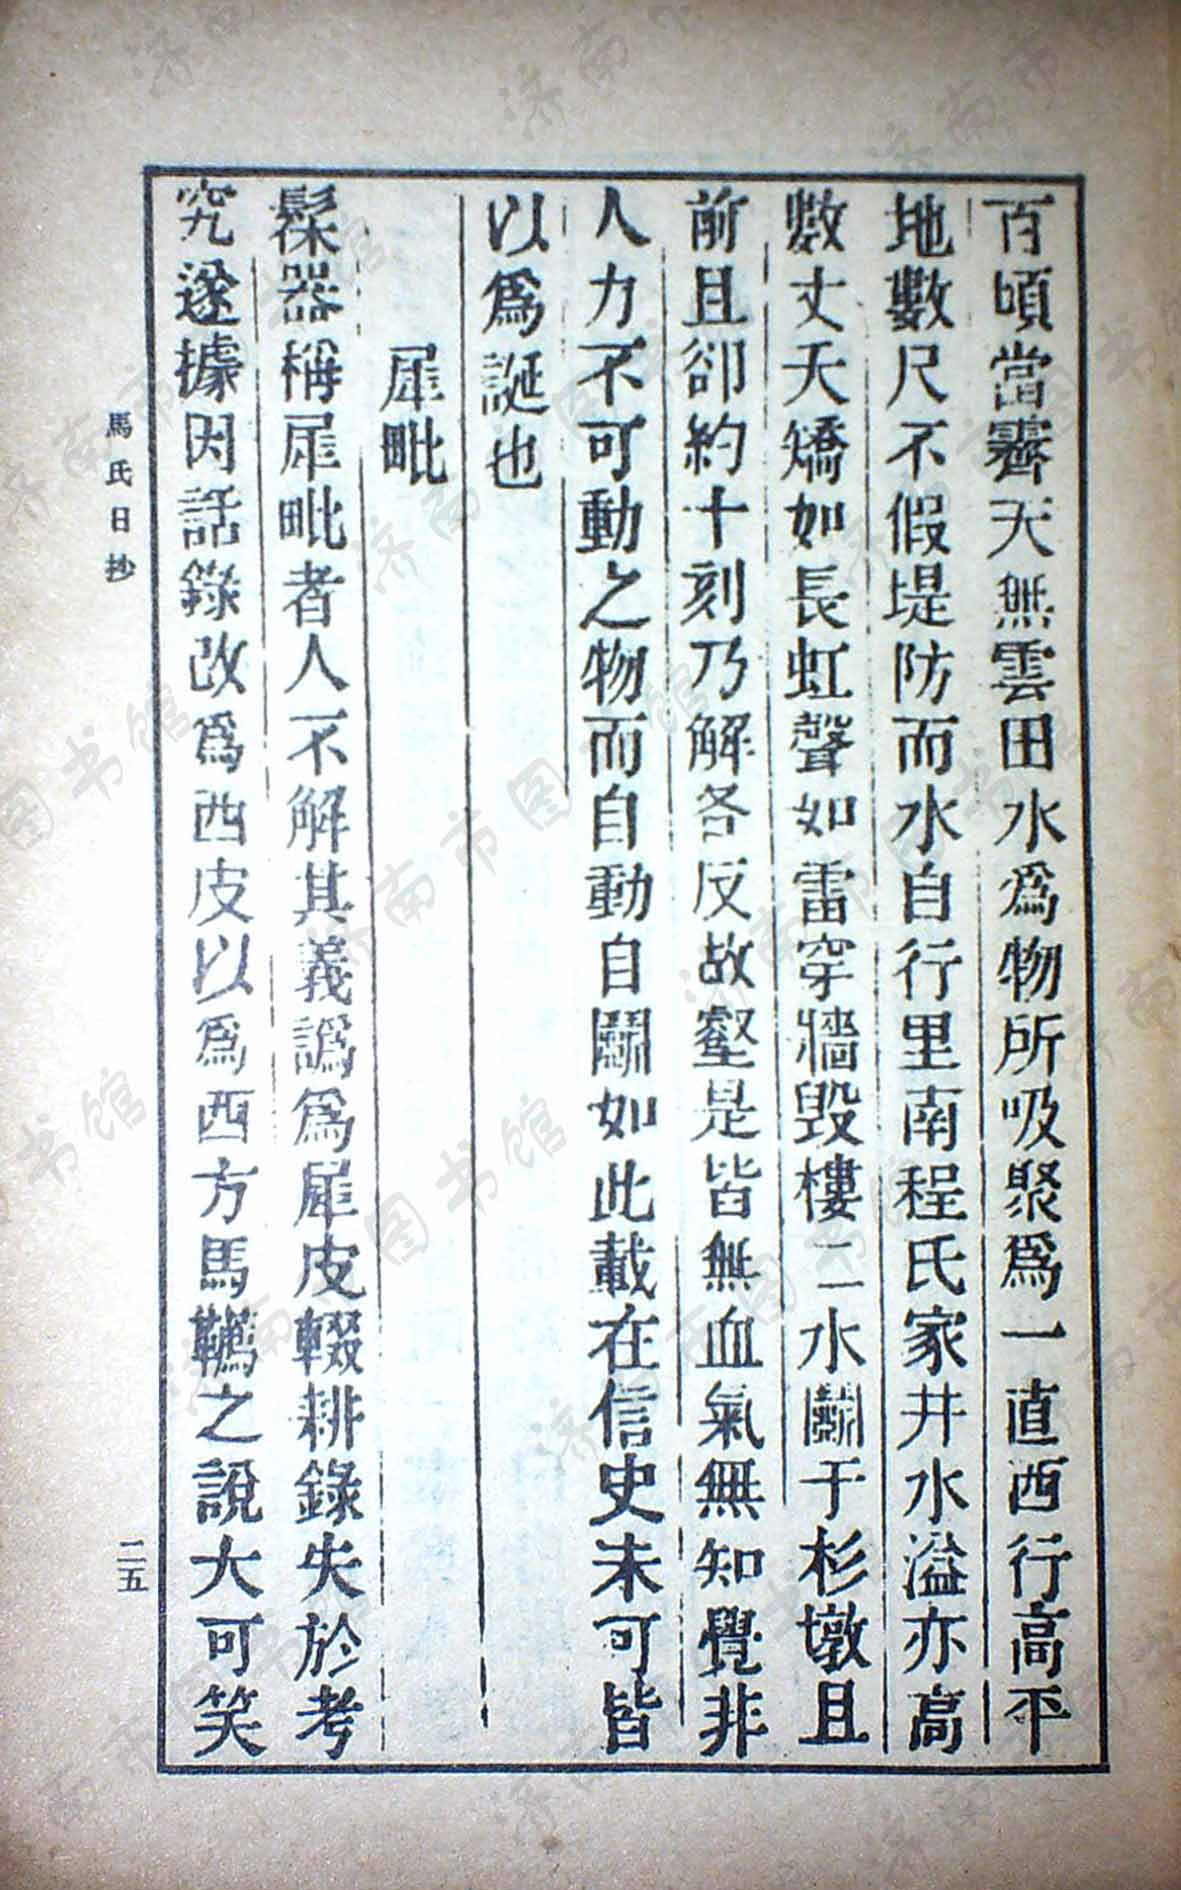 百頃當霽天無雲田水爲物所吸聚爲一直西行高平
地數尺不假堤防而水自行里南程氏家井水溢亦高
數丈夭矯如長虹聲如雷穿牆毀樓二水鬭于杉墩且
前且卻約十刻乃解各反故壑是皆無血氣無知覺非
人力不可動之物而自動自鬭如此載在信史未可皆
以爲誕也
犀毗
髹器稱犀毗者人不解其義譌爲犀皮輟耕錄失於考
究遂據因話錄改爲西皮以爲西方馬韉之說大可笑
馬氏日抄
二五
济南市图书馆